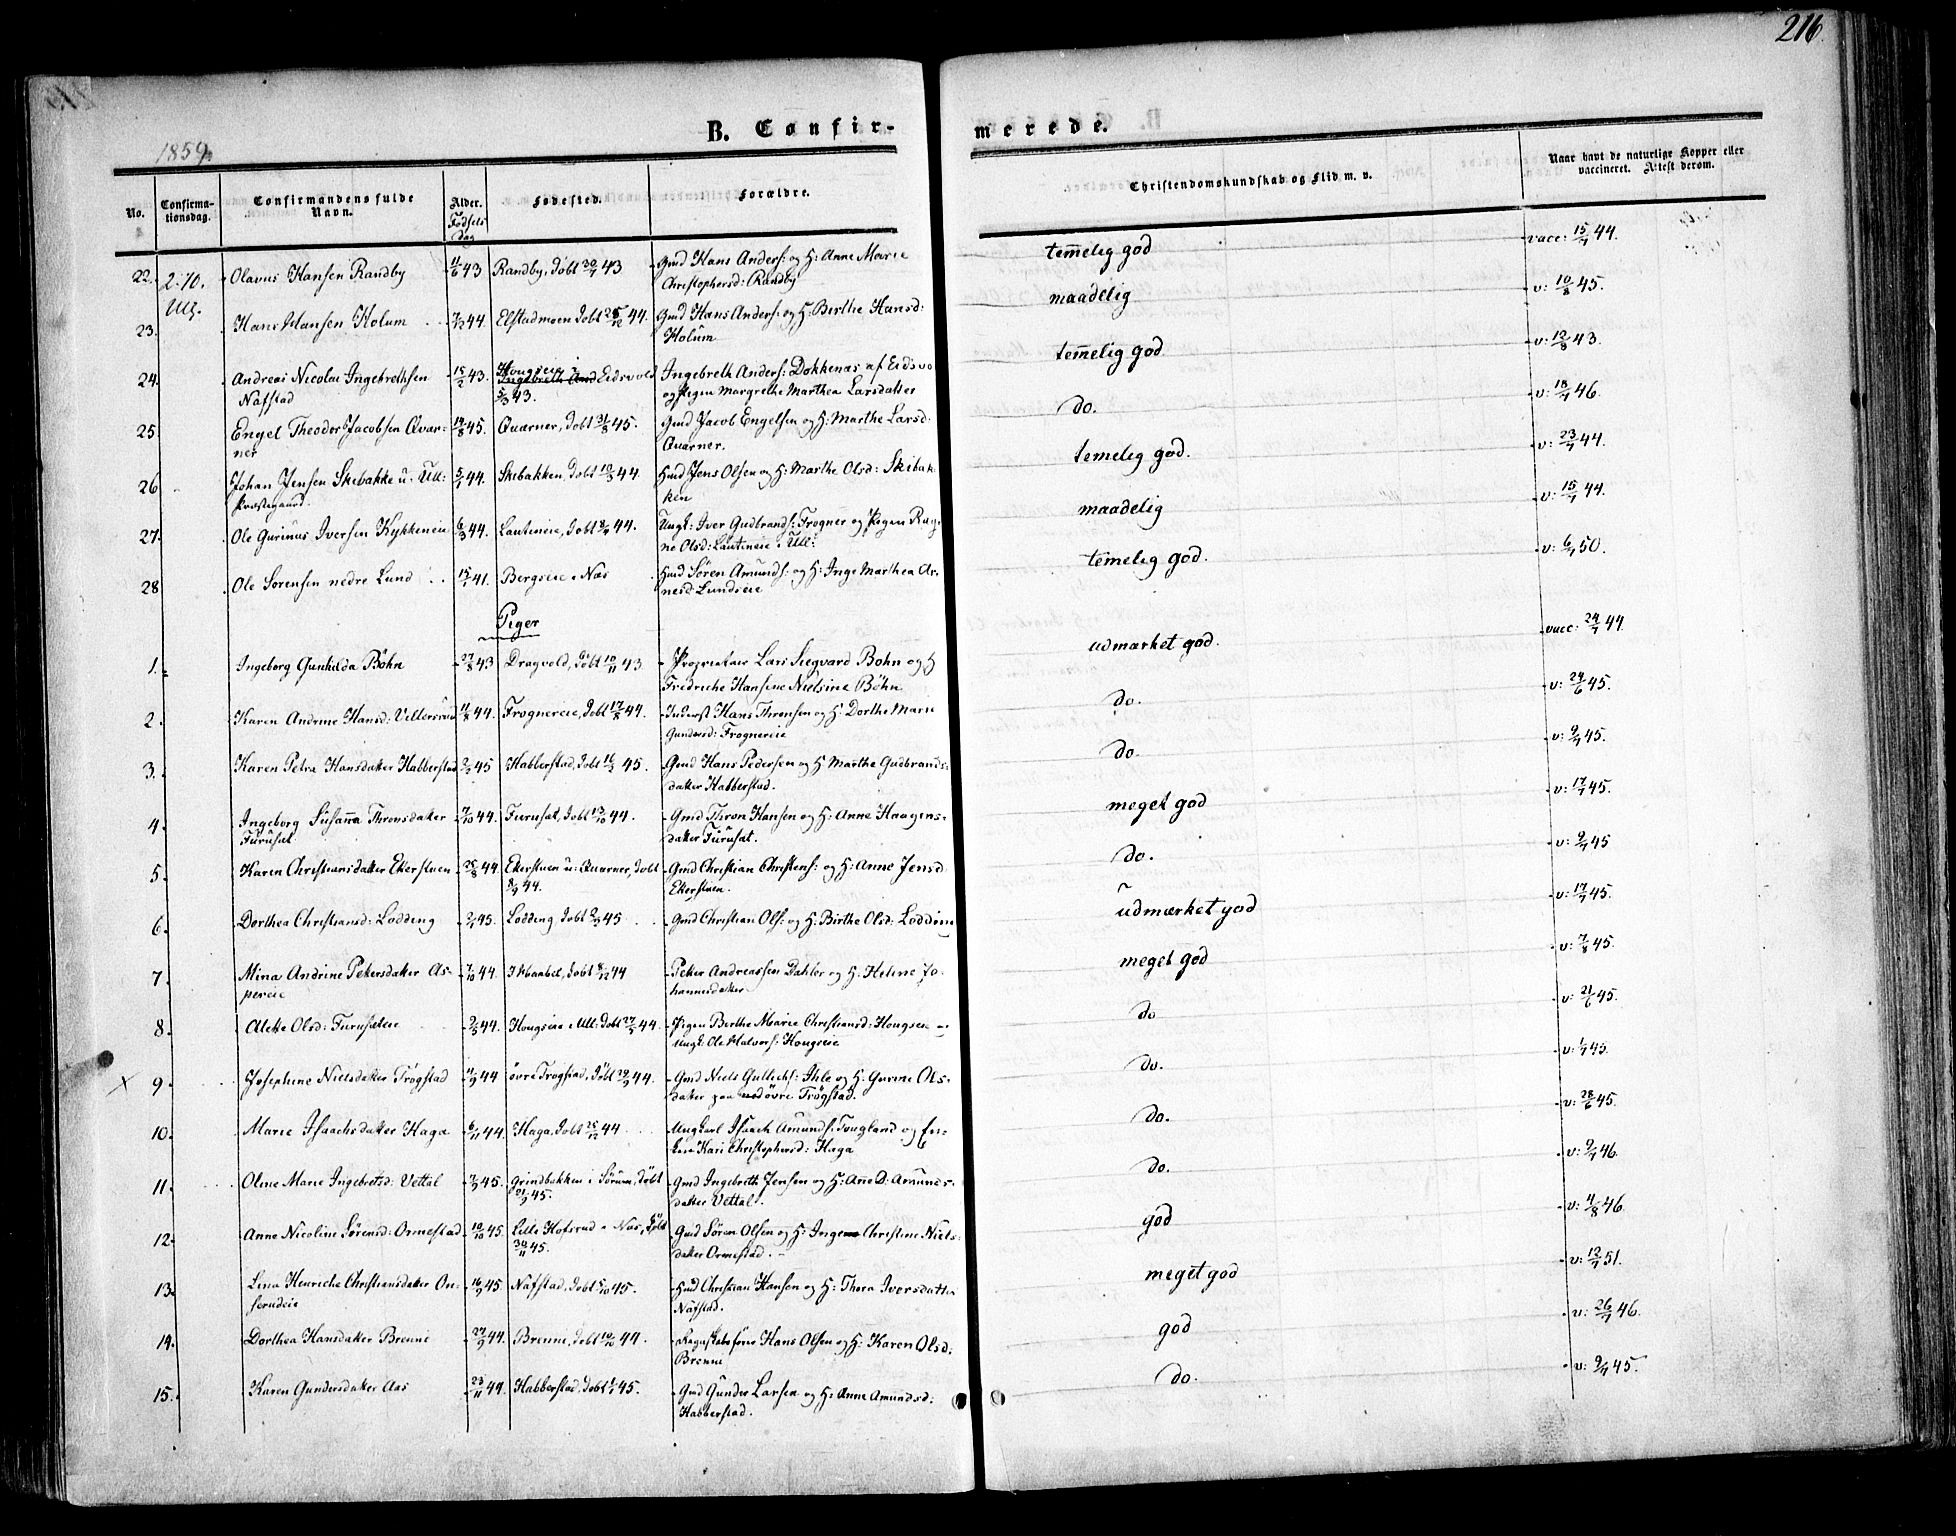 216.
B. Confir-
merede.
1859.
No.
Confirma-
tionsdag.
Confirmandens fulde
Navn.
Alder.
Fødsels
dag
Fødested.
Forældre.
Christendomskundskab og Flid m. v.
Naar havt de naturlige Kopper eller
vaccineret. Attest derom.
22. 2/10. Olavus Hansen Randby 11/6 43 Randby, døbt 30/7 43 Gmd Hans Anders: og H: Anne Marie
Christophersd: Randby
temmelig god vacc: 15/7 44.
Ull.
23. Hans Hansen Holum 7/3 44. Elstadmoen døbt 26/12 44. Gmd Hans Anders: og H: Birthe Hansd:
Holum
maadelig v: 10/8 45.
24. Andreas Nicolai Ingebrethsen 15/2 43. Hougseie i Eidsvold Ingebreth Anders: Dokkenæs af Eidsvo
Nafstad 5/3 43. og Pigen Margrethe Marthea Larsdatter
temmelig god v: 12/8 43.
25. Engel Theodor Jacobsen Qvar- 14/8 45. Quarner, døbt 31/8 45. Gmd Jacob Engelsen og H: Marthe Larsd:
ner Quarner.
do. v: 18/7 46.
26 Johan Jensen Skibakke u: Ull: 5/1 44. Skibakken, døbt 10/3 44. Hmd Jens Olsen og H: Marthe Olsd: Skibak
Præstegaard. ken
temelig god. v: 23/7 44.
27. Ole Gurinus Iversen Kykkeneie 6/3 44. Lauteneie, døbt 8/4 44. Ungk: Iver Gudbrands: Frogner og Pigen Rag
ne Olsd: Lauteneie i Ull:
maadelig v: 15/7 44.
28 Ole Sørensen nedre Lund 15/1 41. Bergseie i Næs Hmd Søren Amunds: og H: Inge Marthea Ar
nesd: Lundseie
temelig god. v: 6/7 50.
Piger
1. Ingeborg Gunhilda Bøhn 27/8 43 Dragvold, døbt 10/11 43 Proprietair Lars Siegvard Bøhn og H
Fredriche Hansine Nielsine Bøhn
udmærket god. vacc: 24/7 44.
2. Karen Andrine Hansd: Vellersrud 11/8 44. Frognereie, døbt 17/8 44. Inderst Hans Thronsen og H: Dorthe Marie
Gundersd: Frognereie
do. v: 24/6 45.
3. Karen Petra Hansdatter Habberstad 2/2 45 Habberstad, døbt 16/3 45. Gmd Hans Pedersen og H Marthe Gudbrands-
datter Habberstad.
do. v: 9/7 45.
4. Ingeborg Susanna Thronsdatter 7/10 44. Furusæt, døbt 13/10 44. Gmd Thron Hansen og H: Anne Haagens-
Furusæt datter Furusæt.
meget god v: 17/7 45.
5. Karen Christiansdatter Ekerstuen 25/8 44. Ekerstuen u: Quarner, døbt Gmd Christian Christens: og H: Anne Jensd
8/9 44. Ekerstuen.
do. v: 9/7 45
6. Dorthea Christiansd: Lodding 2/1 45. Lodding, døbt 2/2 45 Gmd Christian Ols: og H: Birthe Olsd: Lodding
udmærket god v: 17/7 45.
7. Mina Andrine Petersdatter As- 7/10 44. I Maabel, døbt 8/12 44 Peter Andreassen Dahler og H: Helene Jo-
pereie hannesdatter
meget god v: 7/8 45.
8. Alette Olsd: Furusæteie 2/5 44. Hougseie i Ull: døbt 27/5 44. Pigen Berthe Marie Christiansd: Hougseie
Ungk: Ole Halvors: Hougseie
do v: 21/6 45.
x 9. Josephine Nielsdatter Trøgstad 4/9 44 øvre Trøgstad, døbt 29/9 44. Gmd Niels Gullichs: Ihle og H: Gurine Ols-
datter paa øvre Trøgstad.
do. v: 1/7 45.
10. Marie Isaachsdatter Haga 6/11 44. Haga, døbt 25/12 44 Ungkarl Isaack Amunds: Tougland og En-
ken Kari Christophersd: Haga
do. v: 28/6 45.
11. Oline Marie Ingebretsd: Vettal 7/9 45. Grindbakken i Sørum, døbt Gmd Ingebreth Jensen og H: Ane D: Amunds-
21/9 45. datter Vettal.
do. v: 9/7 46.
12. Anne Nicoline Sørensd: Ormestad 10/10 45. Lille Hofsrud i Næs, døbt Gmd Søren Olsen og H: Inge Christine Niels-
30/11 45. datter Ormestad.
god v: 4/8 46.
13. Lina Henriche Christiansdatter On- 16/9 45. Nafstad, døbt 5/10 45. Hmd Christian Hansen og H: Thora Iversdatter
serudeie Nafstad.
meget god v: 12/7 51.
14. Dorthea Hansdatter Brenne 27/9 44. Brenne, døbt 10/10 44. Regnskabsfører Hans Olsen og H: Karen Olsd:
Brenne
god v: 26/7 46.
15. Karen Gundersdatter Aas 23/11 44. Habberstad, døbt 1/1 45. Gmd Gunder Larsen og H: Anne Amundsd:
Habberstad.
do. v: 9/7 45.